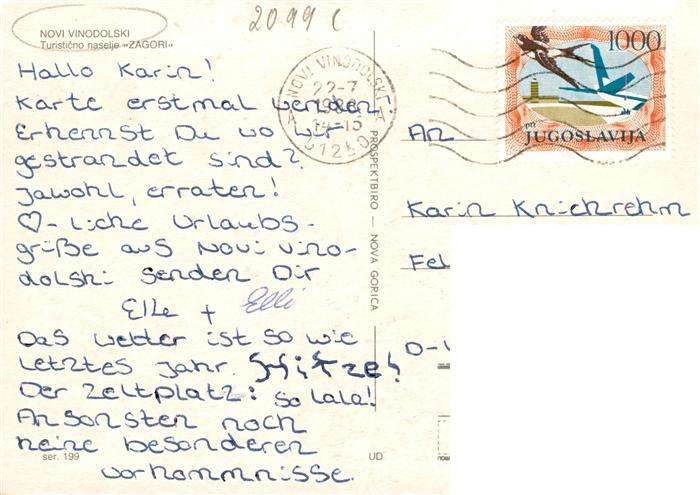 2099 C
NOVI VINODOLSKI
Turističko naselje »ZAGORI«
Hallo Karin!
Karte erstmal wenden!
Erkennst Du wo wir
gestrandet sind?
Jawohl, erraten!
♡-liche Urlaubs-
grüße aus Novi Vino-
dolski senden Dir
Elke + Elli
Das Wetter ist so wie
letztes Jahr. Hitze!
Der Zeltplatz: so lala!
Ansonsten noch
keine besonderen
Vorkommnisse.
ser. 199
UD
PROSPEKTBIRO — NOVA GORICA
NOVI VINODOLSKI
22-7
14-15
51250
1000
PTT JUGOSLAVIJA
An
Karin Knickrehm
Fel
D-